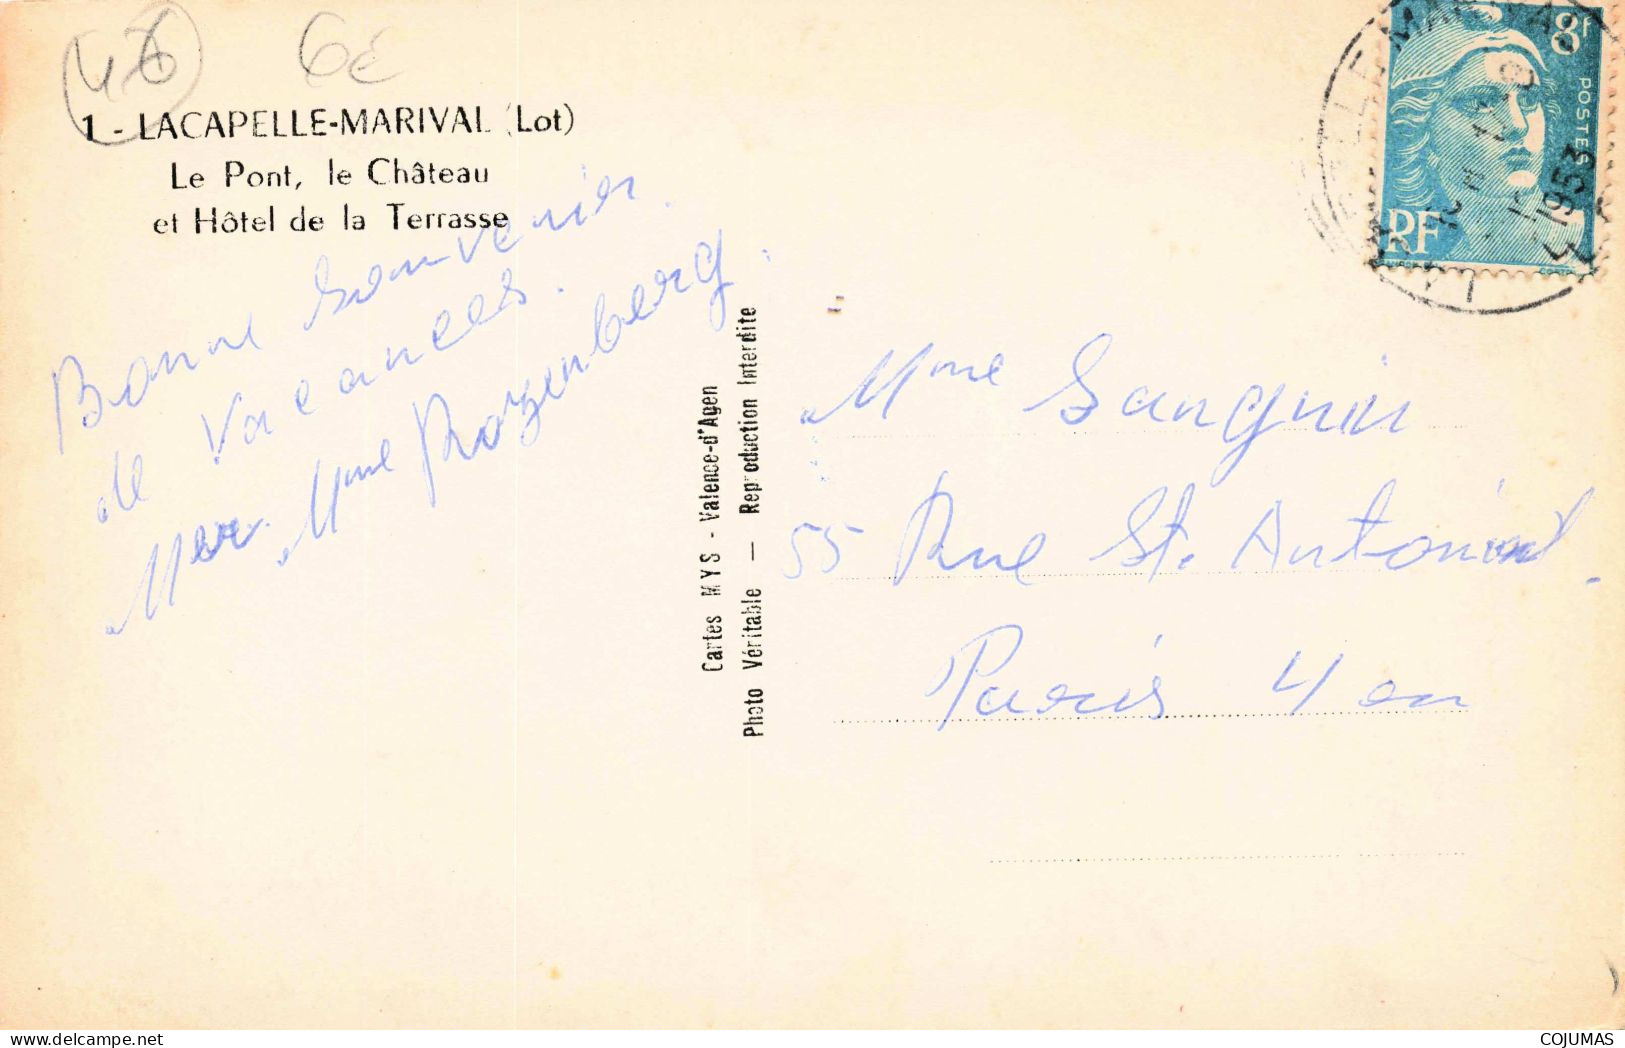 46
6€
1 - LACAPELLE-MARIVAL (Lot)
Le Pont, le Château
et Hôtel de la Terrasse
Bonne Souvenir
de Vacances.
Mme Rozenberg.
Cartes MYS - Valence-d'Agen
Photo Véritable — Reproduction Interdite
8f
POSTES
RF
1953
Mme Sanguin
55 Rue St. Antoine.
Paris 4 em
COJUMAS